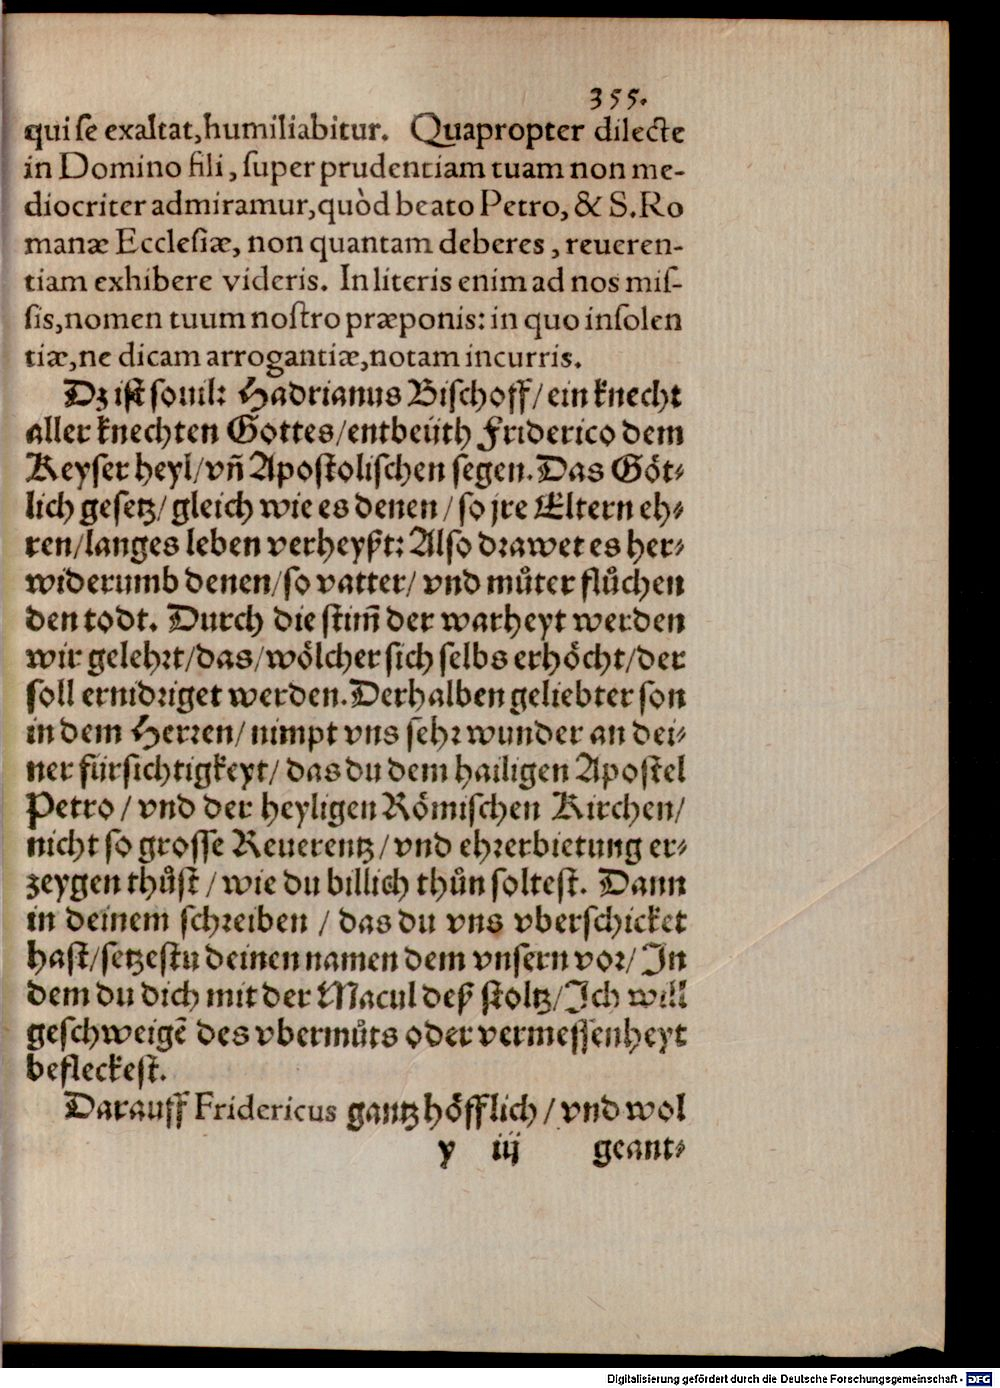 355.
qui se exaltat, humiliabitur. Quapropter dilecte
in Domino fili, super prudentiam tuam non me-
diocriter admiramur, quòd beato Petro, & S. Ro
manæ Ecclesiæ, non quantam deberes, reueren-
tiam exhibere videris. In literis enim ad nos mis-
sis, nomen tuum nostro præponis: in quo insolen
tiæ, ne dicam arrogantiæ, notam incurris.
Dz ist souil: Hadrianus Bischoff/ ein knecht
aller knechten Gottes/ entbeüth Friderico dem
Keyser heyl/ vñ Apostolischen segen. Das Göt-
lich gesetz/ gleich wie es denen/ so jre Eltern eh-
ren/ langes leben verheyßt: Also drawet es her-
widerumb denen/ so vatter/ vnd můter flůchen
den todt. Durch die stim̃ der warheyt werden
wir gelehrt/ das/ wölcher sich selbs erhöcht/ der
soll ernidriget werden. Derhalben geliebter son
in dem Herren/ nimpt vns sehr wunder an dei-
ner fürsichtigkeyt/ das du dem hailigen Apostel
Petro/ vnd der heyligen Römischen Kirchen/
nicht so grosse Reuerentz/ vnd ehrerbietung er-
zeygen thůst/ wie du billich thůn soltest. Dann
in deinem schreiben/ das du vns vberschicket
hast/ setzestu deinen namen dem vnsern vor/ In
dem du dich mit der Macul deß stoltz/ Ich will
geschweigē des vbermůts oder vermessenheyt
befleckest.
Darauff Fridericus gantz höfflich/ vnd wol
y iij geant-
Digitalisierung gefördert durch die Deutsche Forschungsgemeinschaft - DFG